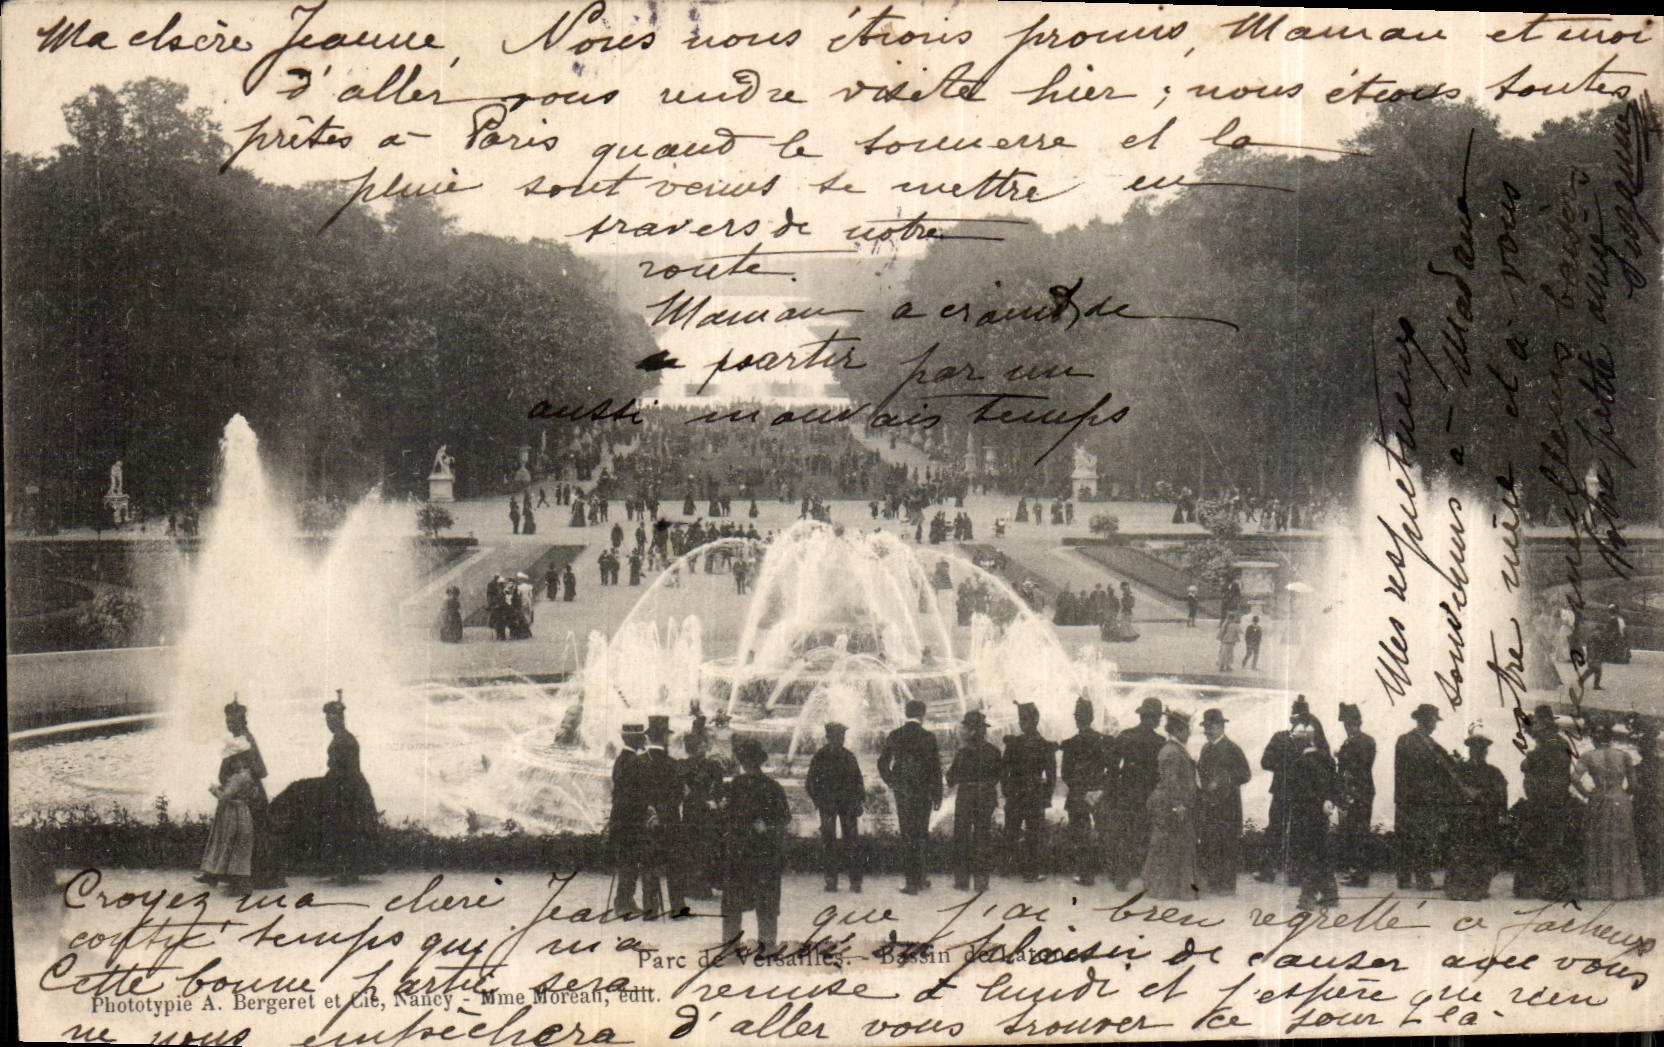 Ma chère Jeanne, Nous nous étions promis, Maman et moi
d'aller vous rendre visite hier ; nous étions toutes
prêtes à Paris quand le tonnerre et la
pluie sont venus se mettre en
travers de notre
route.
Maman a craint de
partir par un
aussi mauvais temps
Croyez ma chère Jeanne que j'ai bien regretté ce fâcheux
contre temps qui m'a privée du plaisir de causer avec vous
Cette bonne partie sera remise à lundi et j'espère que rien
ne nous empêchera d'aller vous trouver ce jour là.
Mes respectueux
souvenirs à Madame
votre mère et à vous
mes meilleurs baisers
Votre petite amie
Suzanne
Parc de Versailles. - Bassin de Latone
Phototypie A. Bergeret et Cie, Nancy - Mme Moreau, édit.